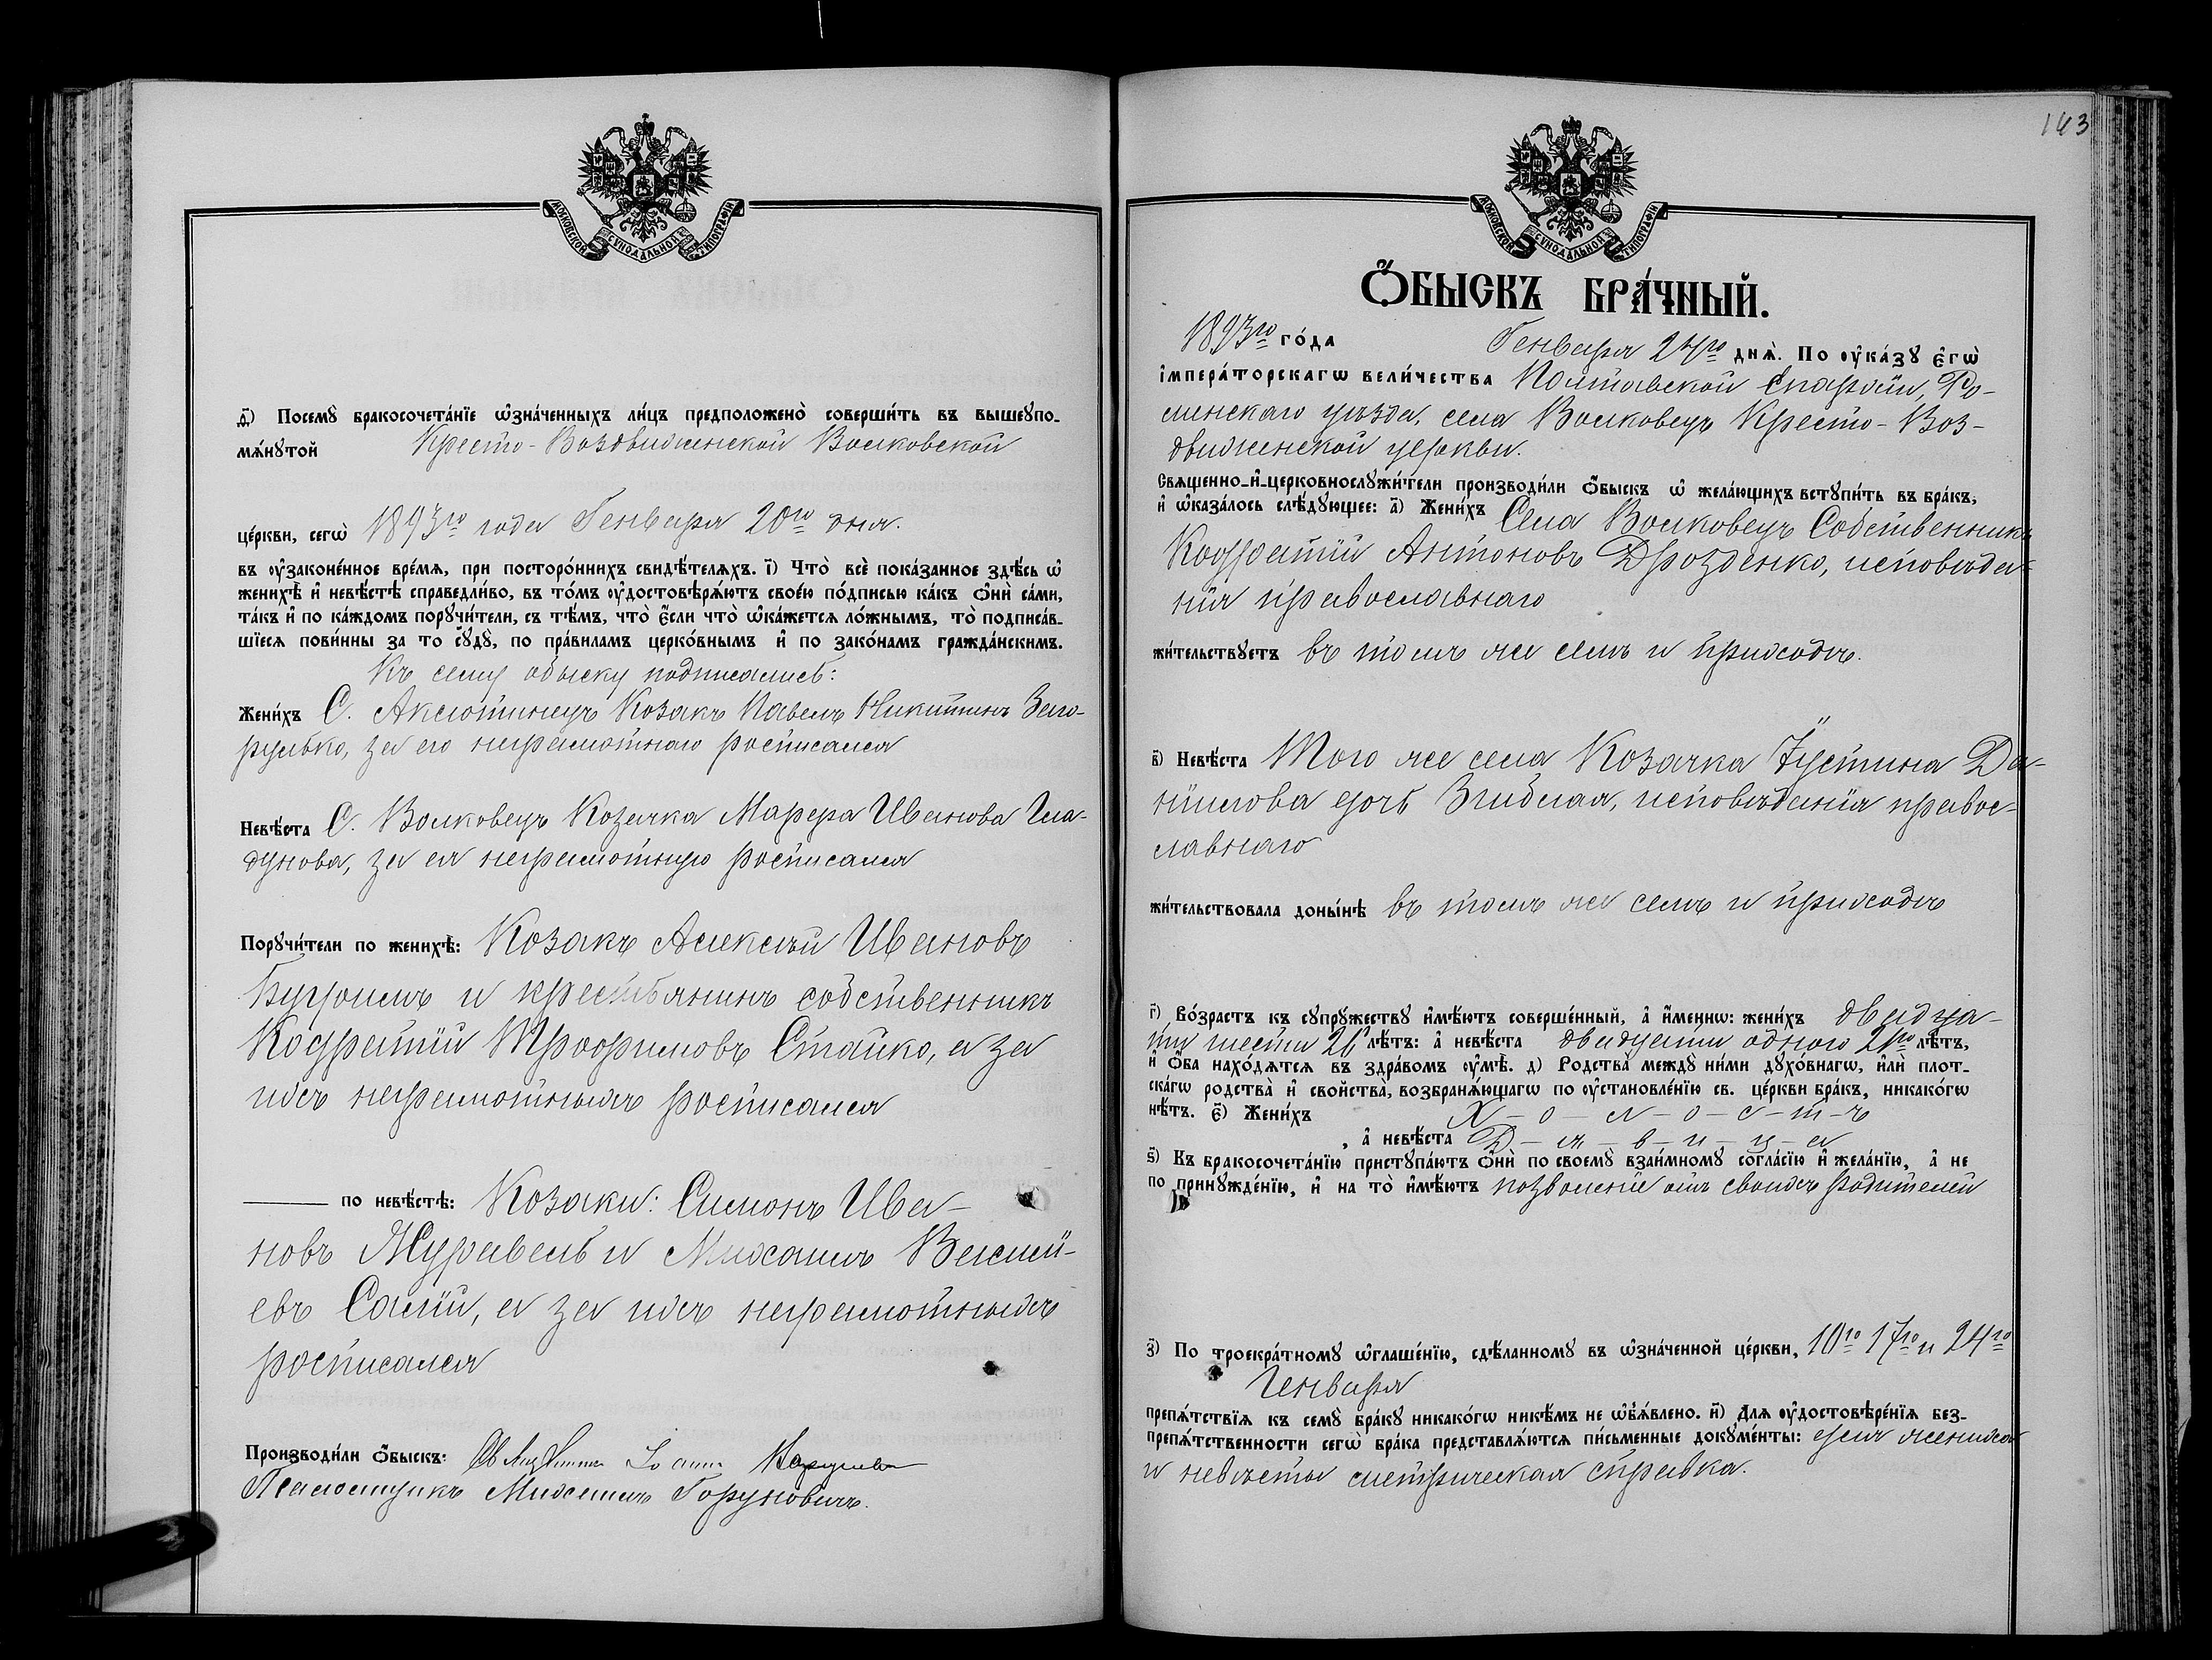 МОСКОВСКОЙ СѴНОДАЛЬНОЙ ТИПОГРАФІИ
д҃) Посемꙋ̀ бракосочета́нїе ѡ҆зна́ченныхъ ли́цъ предположено̀ соверши́ть въ вышеꙋпо-
мѧ́нꙋтой Кресто-Воздвиженской Волковской
це́ркви, сегѡ̀ 1893го года Генваря 20го дня.
въ ᲂу҆зако́ненное вре́мѧ, при посторо́ннихъ свидѣ́телѧхъ. і҃) Что̀ всѐ пока́занное здѣ́сь ѡ҆
женихѣ̀ и҆ невѣ́стѣ справедли́во, въ то́мъ ᲂу҆достовѣрѧ́ютъ свое́ю по́дписью ка́къ ѻ҆нѝ са́ми,
та́къ и҆ по ка́ждомъ порꙋчи́тели, съ тѣ́мъ, что̀ є҆́сли что̀ ѡ҆ка́жетсѧ ло́жнымъ, то̀ подписа́в-
шїесѧ пови́нны за то сꙋдꙋ̀, по пра́виламъ церко́внымъ и҆ по зако́намъ гражда́нскимъ.
Къ сему обыску подписались:
Жени́хъ С. Аксютинцъ Козакъ Павелъ Никитинъ Заго-
рулько, за его неграмотнаго росписался
Невѣ́ста С. Волковецъ Козачка Марѳа Иванова Гла-
дунова, за ея неграмотную росписался
Порꙋчи́тели по женихѣ̀: Козакъ Алексѣй Ивановъ
и крестьянинъ собственникъ
Кодратій Трофимовъ Стайко, а за
ихъ неграмотныхъ росписался
по невѣ́стѣ: Козаки: Симонъ Ива-
новъ Журавель и Михаилъ Василі-
евъ Салій, а за ихъ неграмотныхъ
росписался
Производи́ли ѻ҆́быскъ: Іоаннъ
Псаломщикъ Михаилъ Горуновичъ.
143
МОСКОВСКОЙ СѴНОДАЛЬНОЙ ТИПОГРАФІИ
Ѻ҆БЫСКЪ БРА́ЧНЫЙ.
1893го го́да Генваря 24го днѧ̀. По ᲂу҆ка́зꙋ є҆гѡ̀
і҆мпера́торскагѡ вели́чества Полтавской Епархіи, Ро-
менскаго уѣзда, села Волковецъ Кресто-Воз-
движенской церкви.
Свѧщенно-и҆-церковнослꙋжи́тели производи́ли ѻ҆́быскъ ѡ҆ жела́ющихъ встꙋпи́ть въ бра́къ,
и҆ ѡ҆каза́лось слѣ́дꙋющее: а҃) Жени́хъ Села Волковецъ Собственникъ
Кодратій Антоновъ Дрозденко, исповѣда-
нія православнаго
жи́тельствꙋетъ въ томъ же селѣ и приходѣ.
в҃) Невѣ́ста Того же села Козачка Іустина Да-
ніилова дочь Згиблая, исповѣданія правос-
лавнаго
жи́тельствовала доны́нѣ въ томъ же селѣ и приходѣ
г҃) Во́зрастъ къ сꙋпрꙋ́жествꙋ и҆мѣ́ютъ соверше́нный, а҆ и҆́меннѡ: жени́хъ двадца-
ти шести 26 лѣ́тъ: а҆ невѣ́ста двадцати одного 21го лѣ́тъ,
и҆ ѻ҆́ба нахо́дѧтсѧ въ здра́вомъ ᲂу҆мѣ̀. д҃) Родства̀ междꙋ̀ ни́ми дꙋхо́внагѡ, и҆лѝ плот-
ска́гѡ родства̀ и҆ сво́йства, возбранѧ́ющагѡ по ᲂу҆становле́нїю св. це́ркви бра́къ, никако́гѡ
нѣ́тъ. є҃) Жени́хъ Х-о-л-о-с-т-ъ
, а҆ невѣ́ста Д-ѣ-в-и-ц-а
ѕ҃) Къ бракосочета́нїю пристꙋпа́ютъ ѻ҆нѝ по своемꙋ̀ взаи́мномꙋ согла́сїю и҆ жела́нїю, а҆ не
по принꙋжде́нїю, и҆ на то̀ и҆мѣ́ютъ позволеніе отъ своихъ родителей
з҃) По троекра́тномꙋ ѡ҆глаше́нїю, сдѣ́ланномꙋ въ ѡ҆зна́ченной це́ркви, 10го 17го и 24го
Генваря
препѧ́тствїѧ къ семꙋ̀ бра́кꙋ никако́гѡ никѣ́мъ не ѡ҆б̾ѧ́влено. и҃) Длѧ ᲂу҆достовѣре́нїѧ без-
препѧ́тственности сегѡ̀ бра́ка представлѧ́ютсѧ пи́сьменные докꙋме́нты: для жениха
и невѣсты метрическая справка.